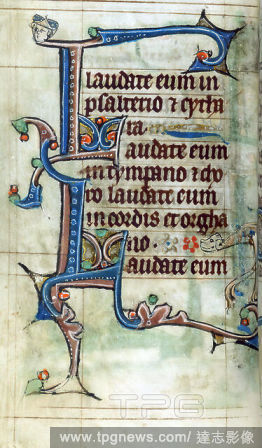 laudate eum in
psalterio ⁊ cytha
ra.
Laudate eum
in tympano ⁊ cho
ro laudate eum
in cordis et orgha
no.
Laudate eum
TPG
www.tpgnews.com/達志影像